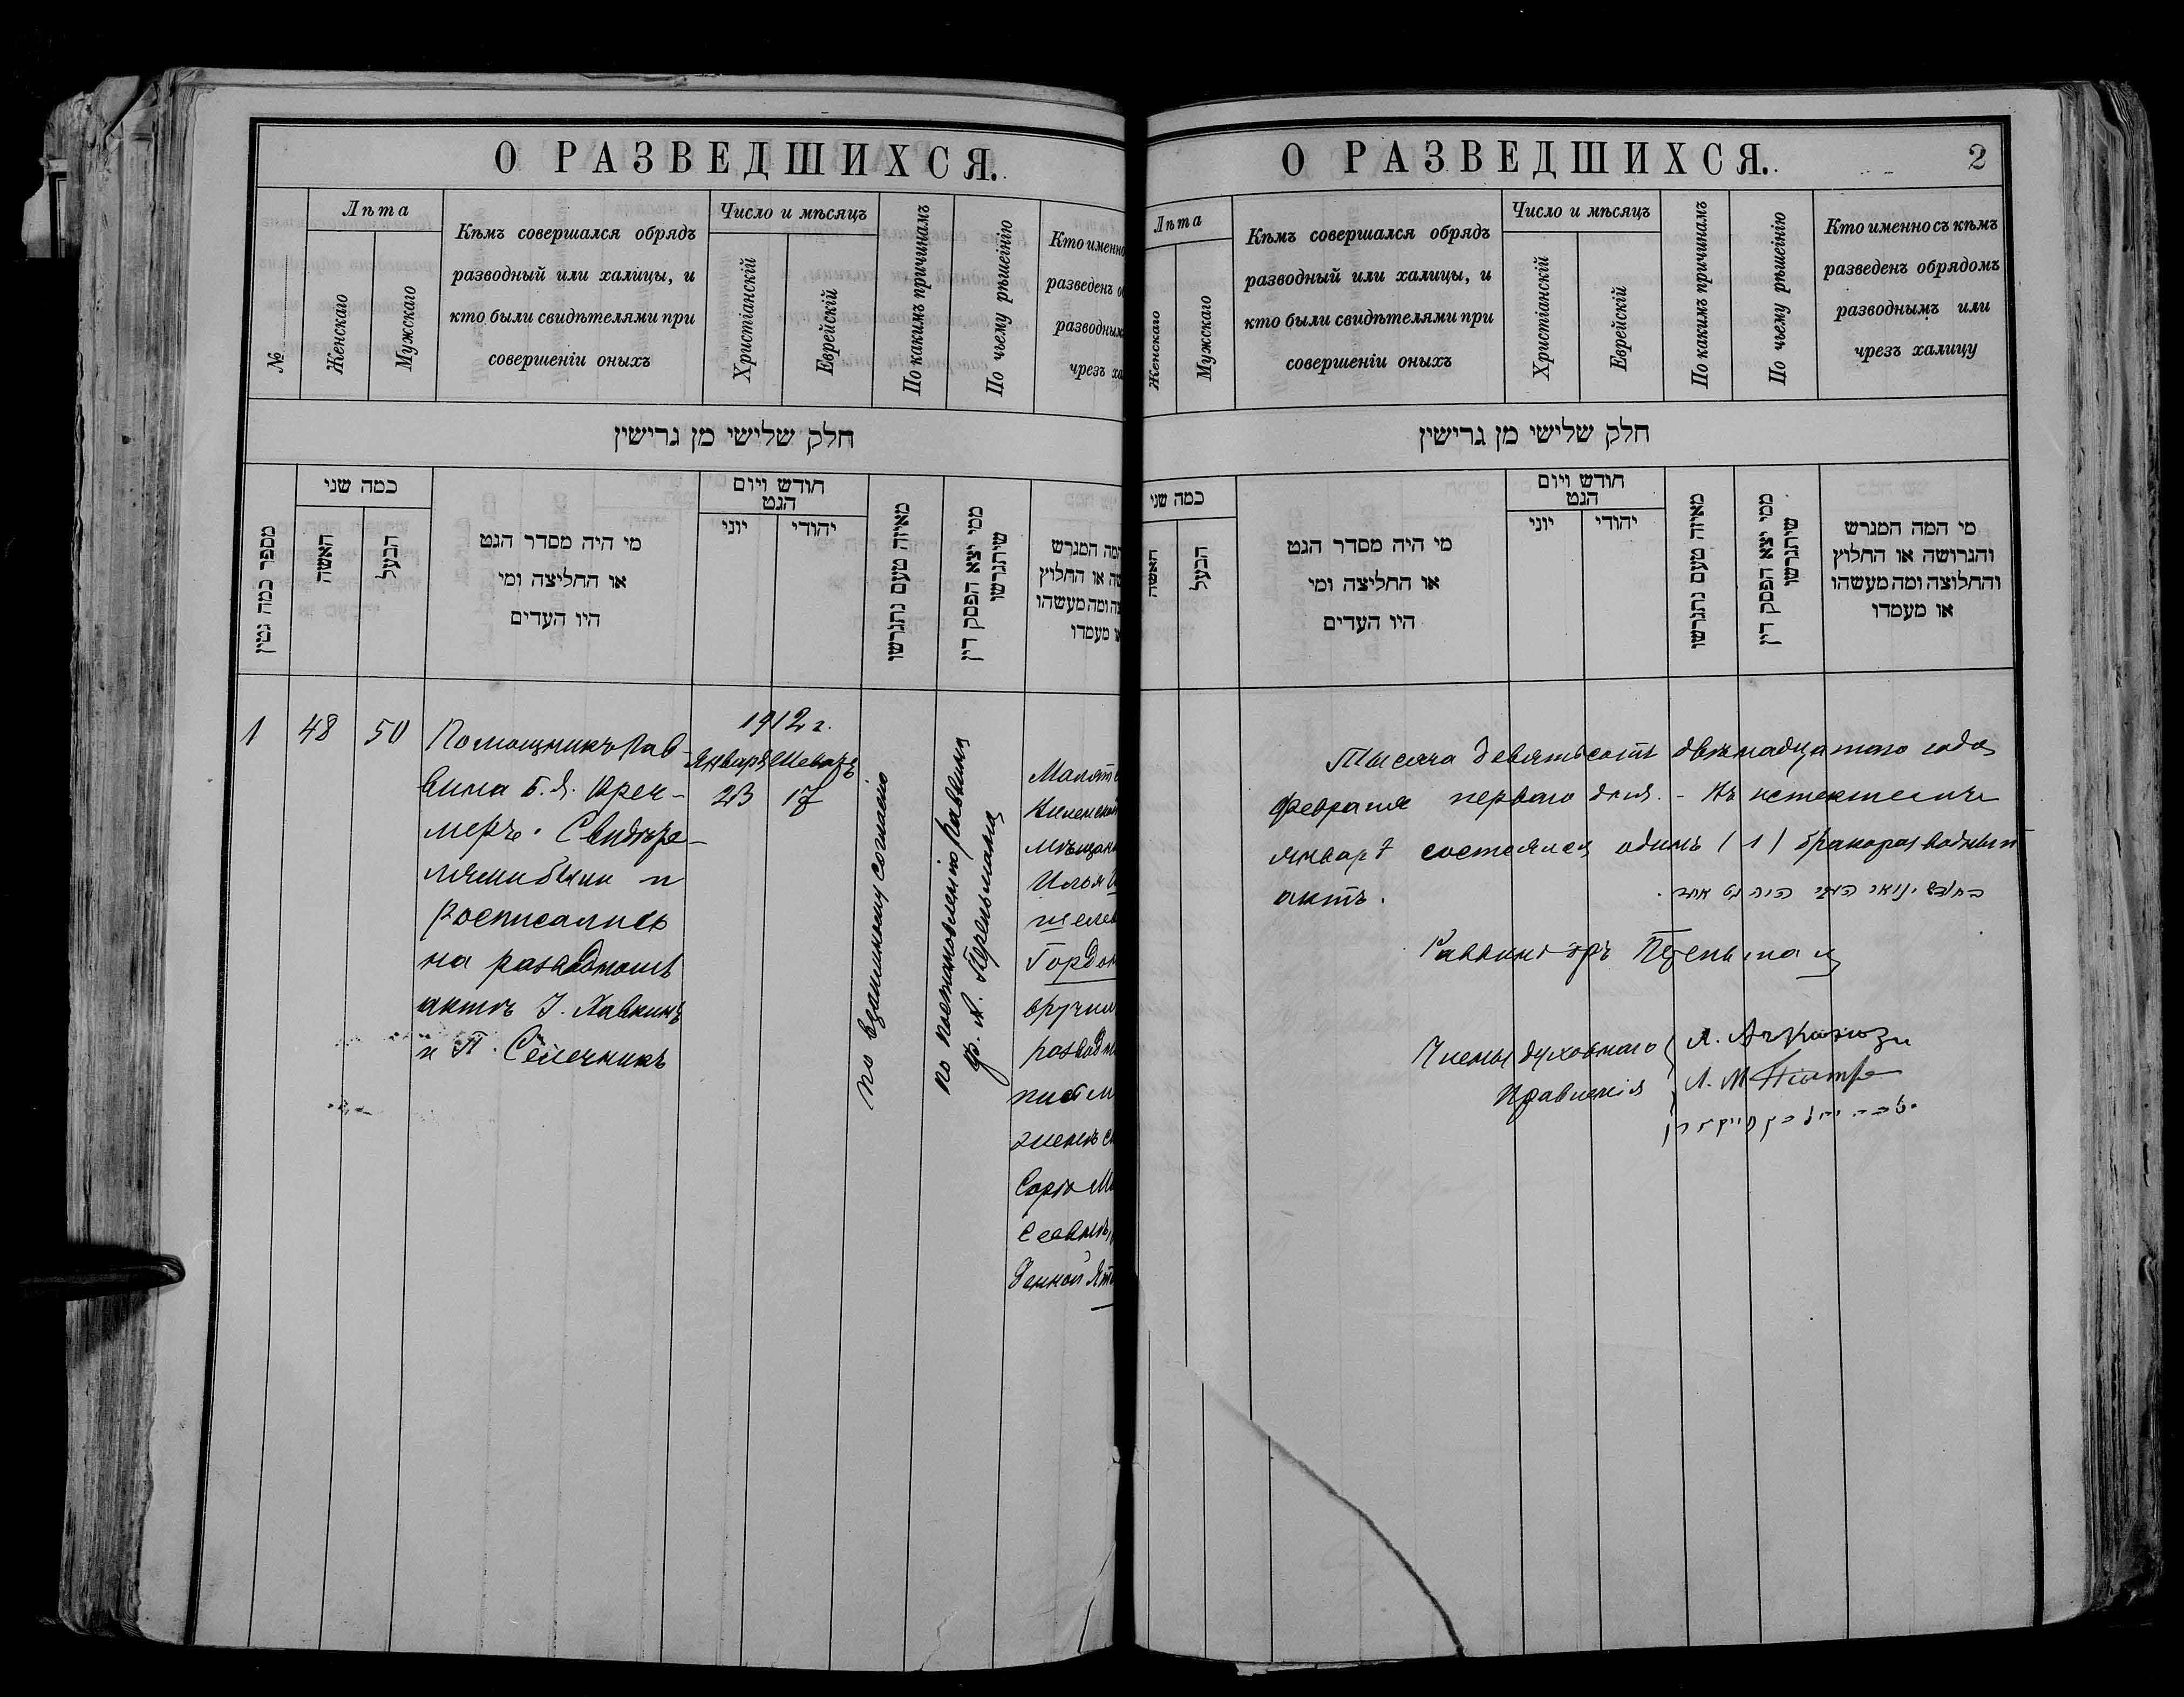 О РАЗВЕДШИХСЯ.
№
Лѣта
Женскаго
Мужскаго
Кѣмъ совершался обрядъ
разводный или халицы, и
кто были свидѣтелями при
совершеніи оныхъ
Число и мѣсяцъ
Христіанскій
Еврейскій
По какимъ причинамъ
По чьему рѣшенію
Кто именно
разведенъ о
разводным
чрезъ ха
חלק שלישי מן גרישין
מספר כמה גטין
כמה שני
האשה
הבעל
מי היה מסדר הגט
או החליצה ומי
היו העדים
חודש ויום
הגט
יוני
יהודי
מאיזה טעם נתגרשו
ממי יצא הפסק דין
שיתגרשו
המה המגרש
שה או החלוץ
צה ומה מעשהו
או מעמדו
1
48
50
Помощникъ Рав-
вина Б. Я. Крен-
меръ. Свидѣте-
лями были и
росписались
на разводномъ
актѣ І. Хавкинъ
и П.
1912 г.
Января
Шеватъ
23
17
по взаимному согласію
по постановленію раввина
др. А. Перельмана
мѣщан
Илья
Гордон
вручил
разводн
Сарѣ М
О РАЗВЕДШИХСЯ.
2
Лѣта
Женскаго
Мужскаго
Кѣмъ совершался обрядъ
разводный или халицы, и
кто были свидѣтелями при
совершеніи оныхъ
Число и мѣсяцъ
Христіанскій
Еврейскій
По какимъ причинамъ
По чьему рѣшенію
Кто именно съ кѣмъ
разведенъ обрядомъ
разводнымъ или
чрезъ халицу
חלק שלישי מן גרישין
כמה שני
האשה
הבעל
מי היה מסדר הגט
או החליצה ומי
היו העדים
חודש ויום
הגט
יוני
יהודי
מאיזה טעם נתגרשו
ממי יצא הפסק דין
שיתגרשו
מי המה המגרש
והגרושה או החלוץ
והחלוצה ומה מעשהו
או מעמדו
Тысяча девятьсотъ двѣнадцатаго года
февраля перваго дня. - Въ истекшемъ
январѣ состоялся одинъ (1) бракоразводный
актъ.
היה גט אחד.
Раввинъ др.
Члены духовнаго
Правленія